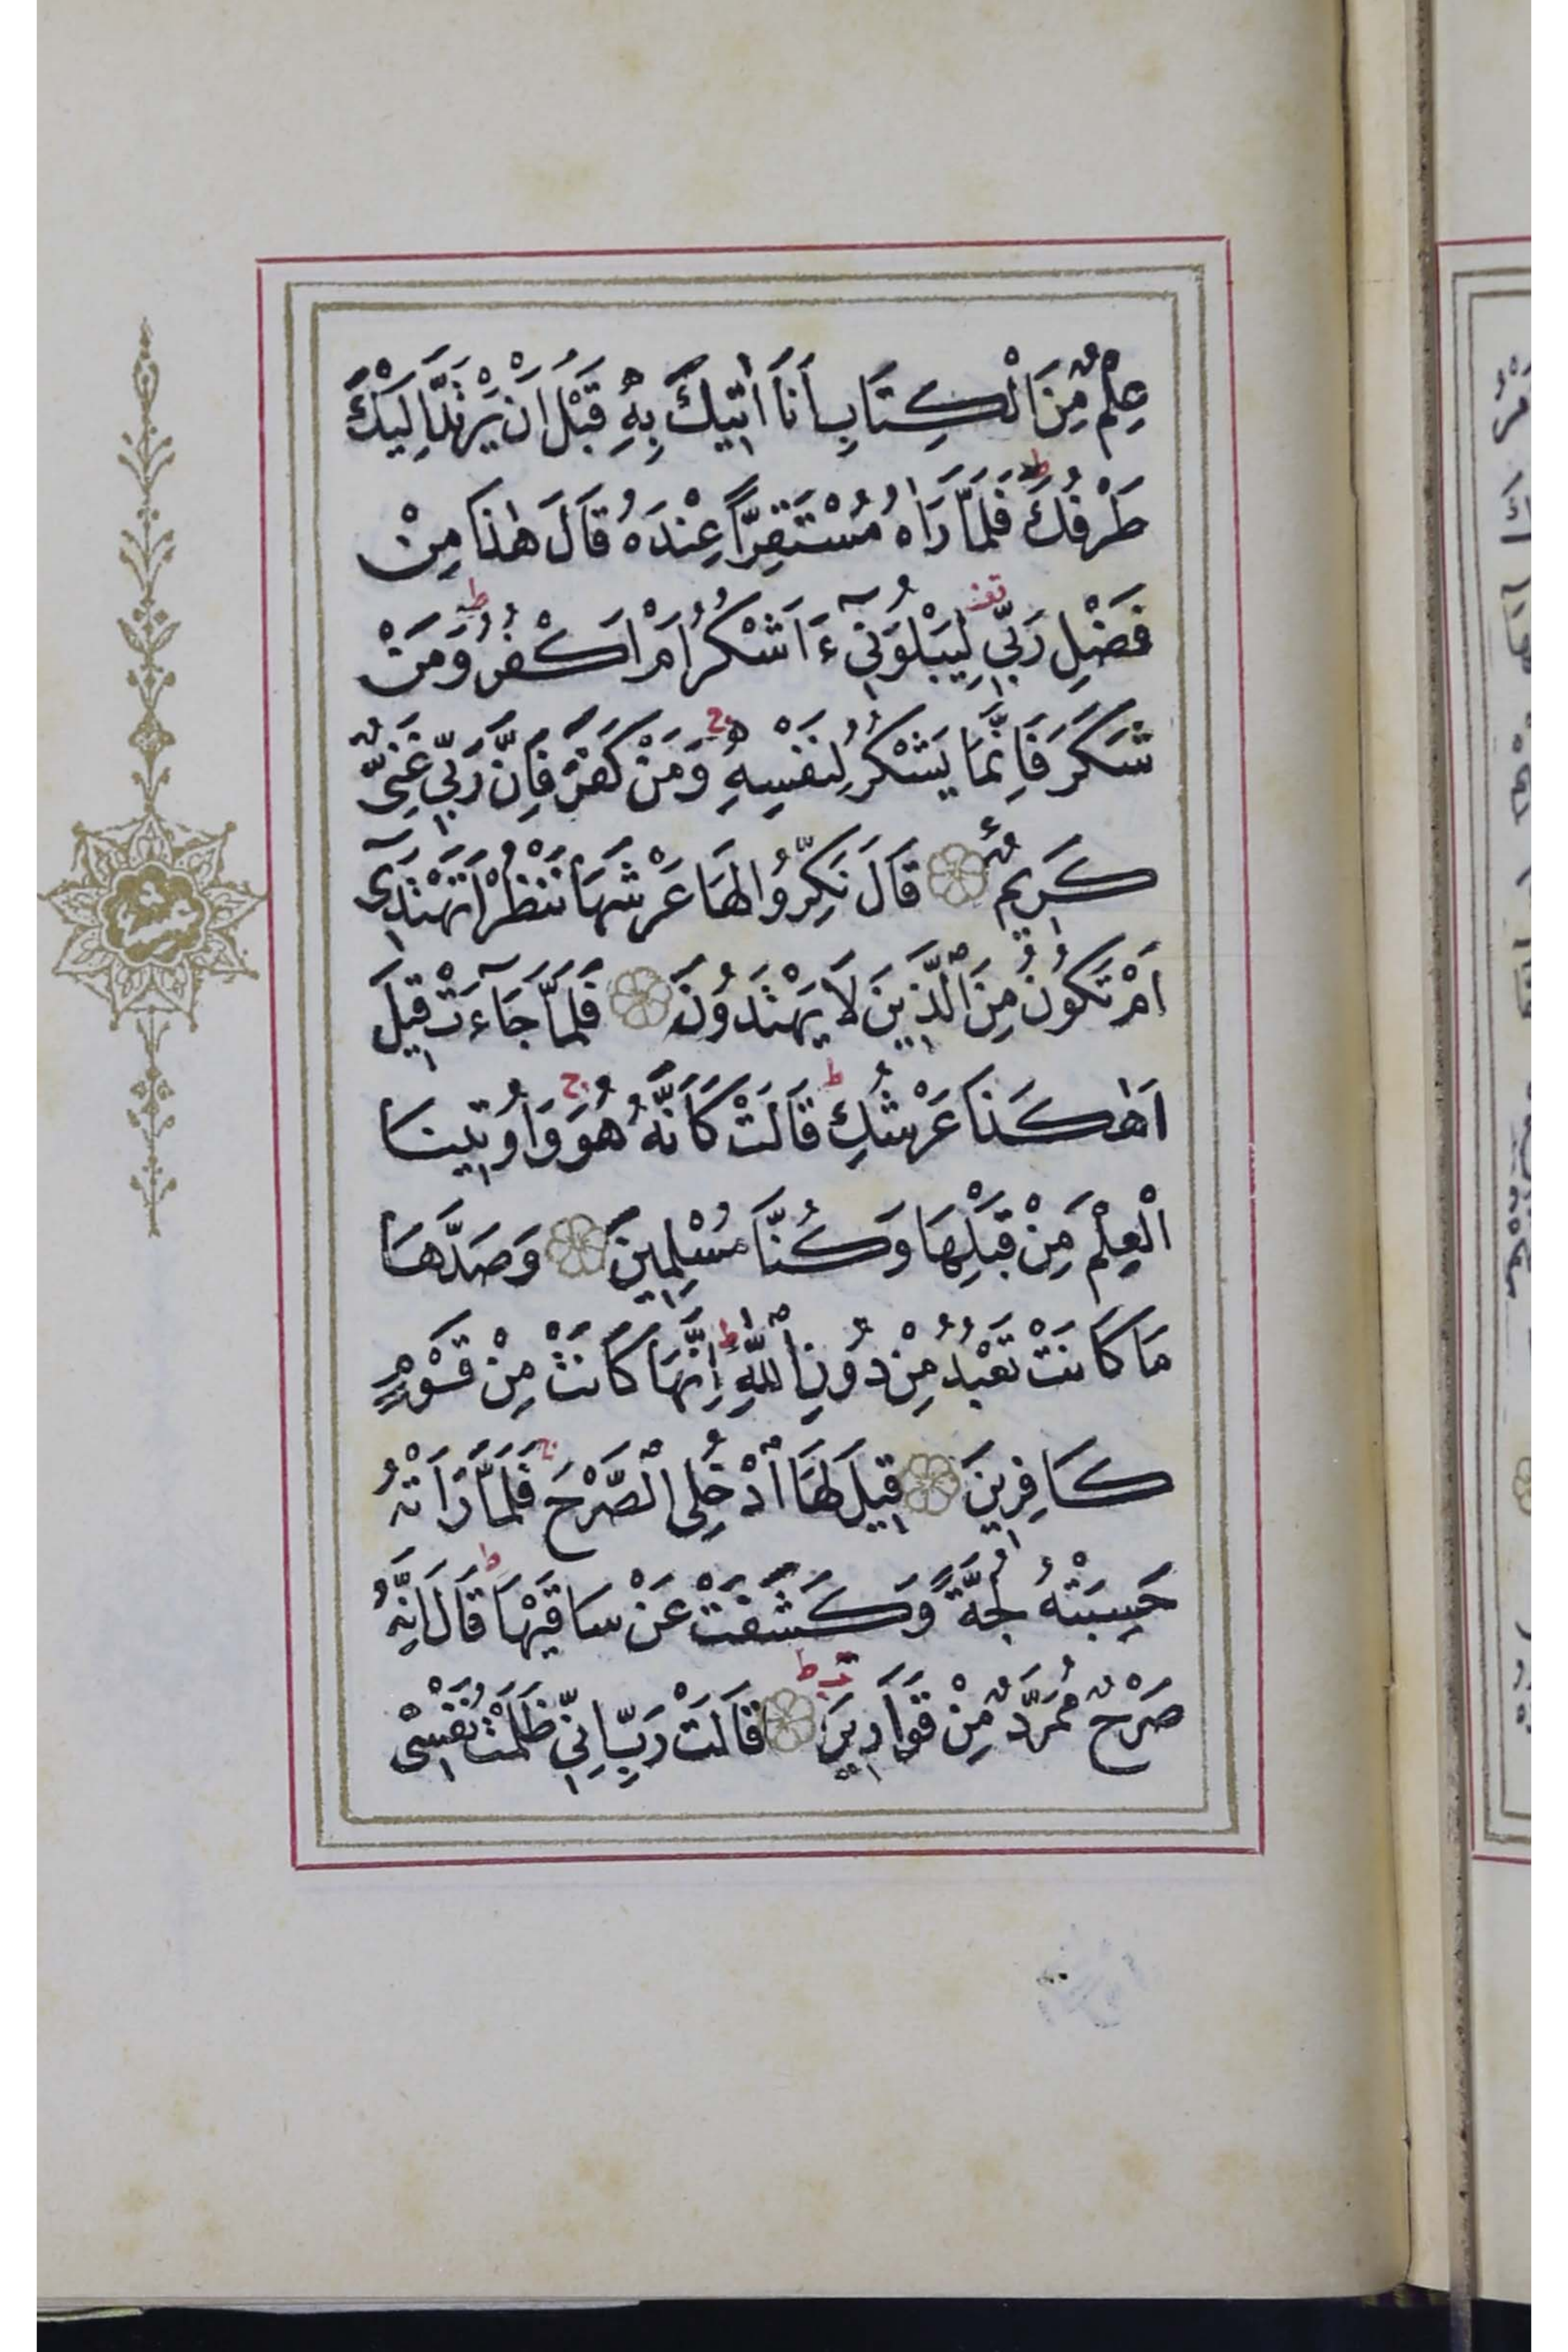 عِلْمٌ مِنَ الْكِتَابِ اَنَا اٰتٖيكَ بِهٖ قَبْلَ اَنْ يَرْتَدَّ اِلَيْكَ
طَرْفُكَ ط فَلَمَّا رَاٰهُ مُسْتَقِرًّا عِنْدَهُ قَالَ هٰذَا مِنْ
فَضْلِ رَبّٖي قف لِيَبْلُوَنٖٓي ءَاَشْكُرُ اَمْ اَكْفُرُ ط وَمَنْ
شَكَرَ فَاِنَّمَا يَشْكُرُ لِنَفْسِهٖ ج وَمَنْ كَفَرَ فَاِنَّ رَبّٖي غَنِيٌّ
كَرٖيمٌ قَالَ نَكِّرُوا لَهَا عَرْشَهَا نَنْظُرْ اَتَهْتَدٖٓي
اَمْ تَكُونُ مِنَ الَّذٖينَ لَا يَهْتَدُونَ فَلَمَّا جَٓاءَتْ قٖيلَ
اَهٰكَذَا عَرْشُكِ ط قَالَتْ كَاَنَّهُ هُوَ ج وَاُوتٖينَا
الْعِلْمَ مِنْ قَبْلِهَا وَكُنَّا مُسْلِمٖينَ وَصَدَّهَا
مَا كَانَتْ تَعْبُدُ مِنْ دُونِ اللّٰهِ ط اِنَّهَا كَانَتْ مِنْ قَوْمٍ
كَافِرٖينَ قٖيلَ لَهَا ادْخُلِى الصَّرْحَ ج فَلَمَّا رَاَتْهُ
حَسِبَتْهُ لُجَّةً وَكَشَفَتْ عَنْ سَاقَيْهَا ط قَالَ اِنَّهُ
صَرْحٌ مُمَرَّدٌ مِنْ قَوَارٖيرَ ط قَالَتْ رَبِّ اِنّٖي ظَلَمْتُ نَفْسٖى